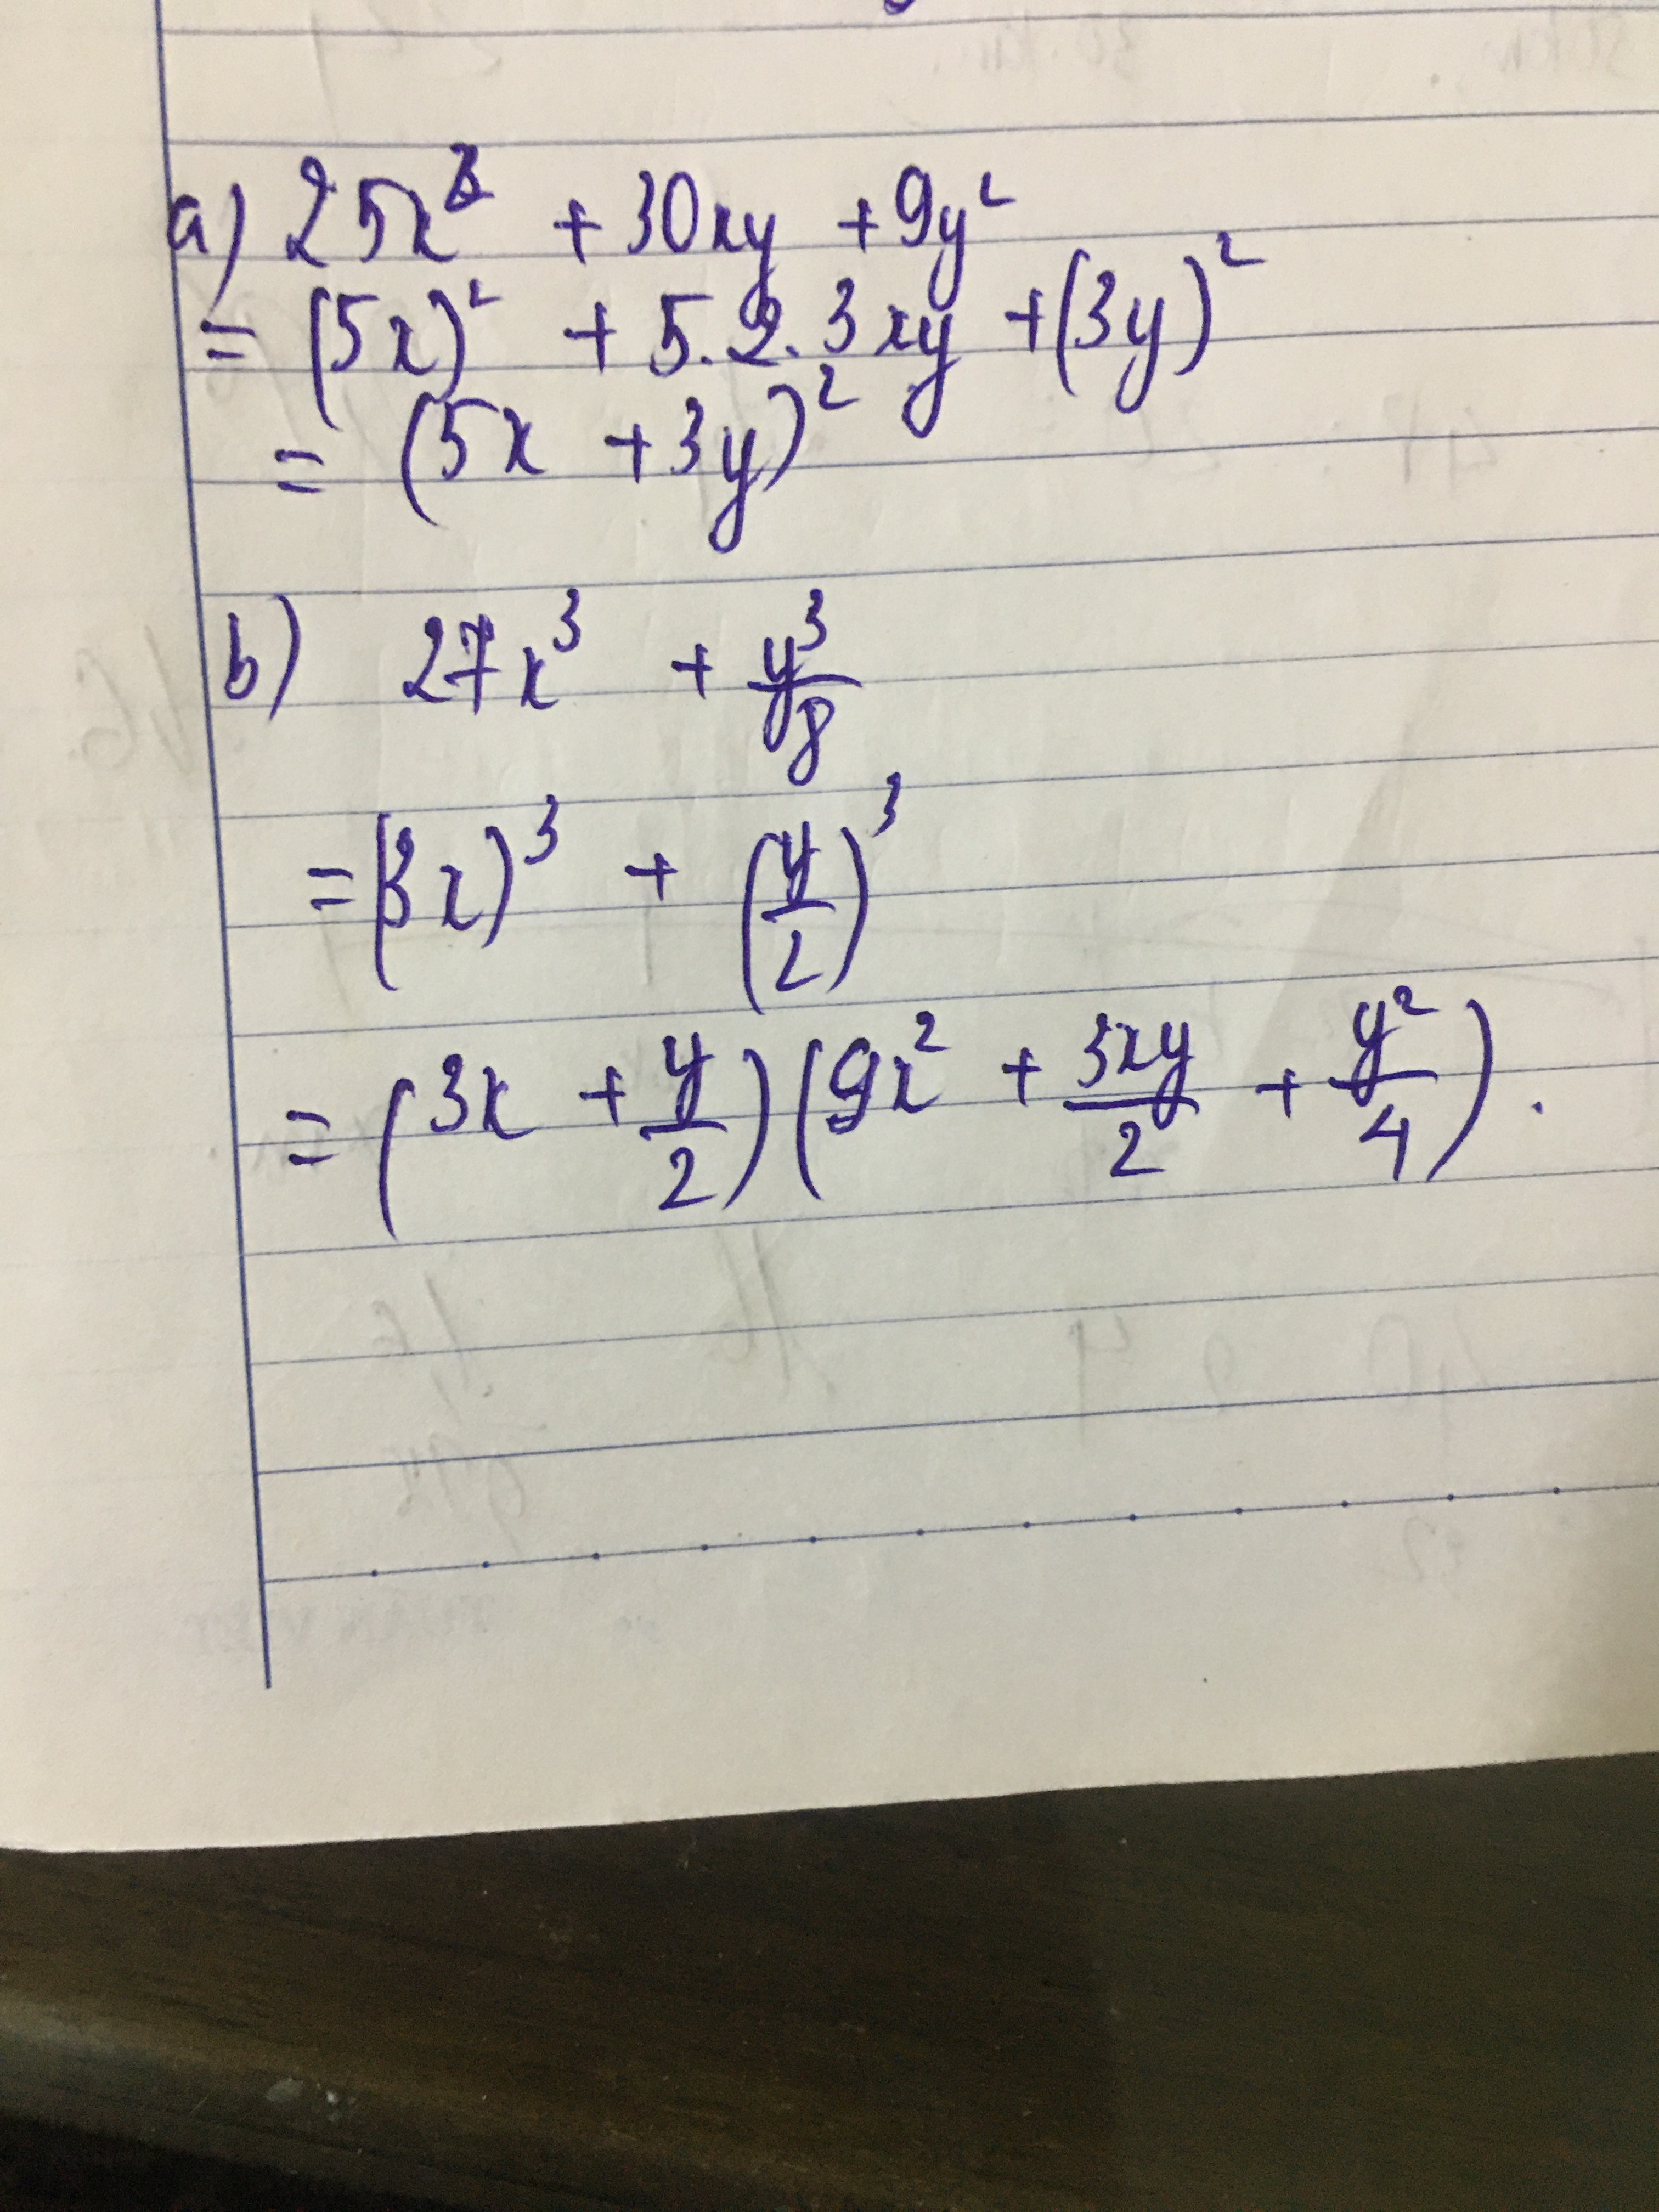 a) 25x² + 30xy + 9y²
= (5x)² + 5.2.3xy + (3y)²
= (5x + 3y)²
b) 27x³ + y³/8
= (3x)³ + (y/2)³
= (3x + y/2)(9x² + 3xy/2 + y²/4).